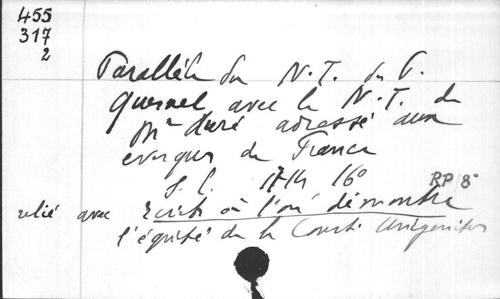 455
317
2
Parallèle du N.T. du P.
Quesnel avec le N.T. de
Mr Huré adressé aux
evêques de France
S. l. 1714 16°
RP/8°
relié avec Ecrit où l'on démontre
l'équité de la Const. Unigenitus